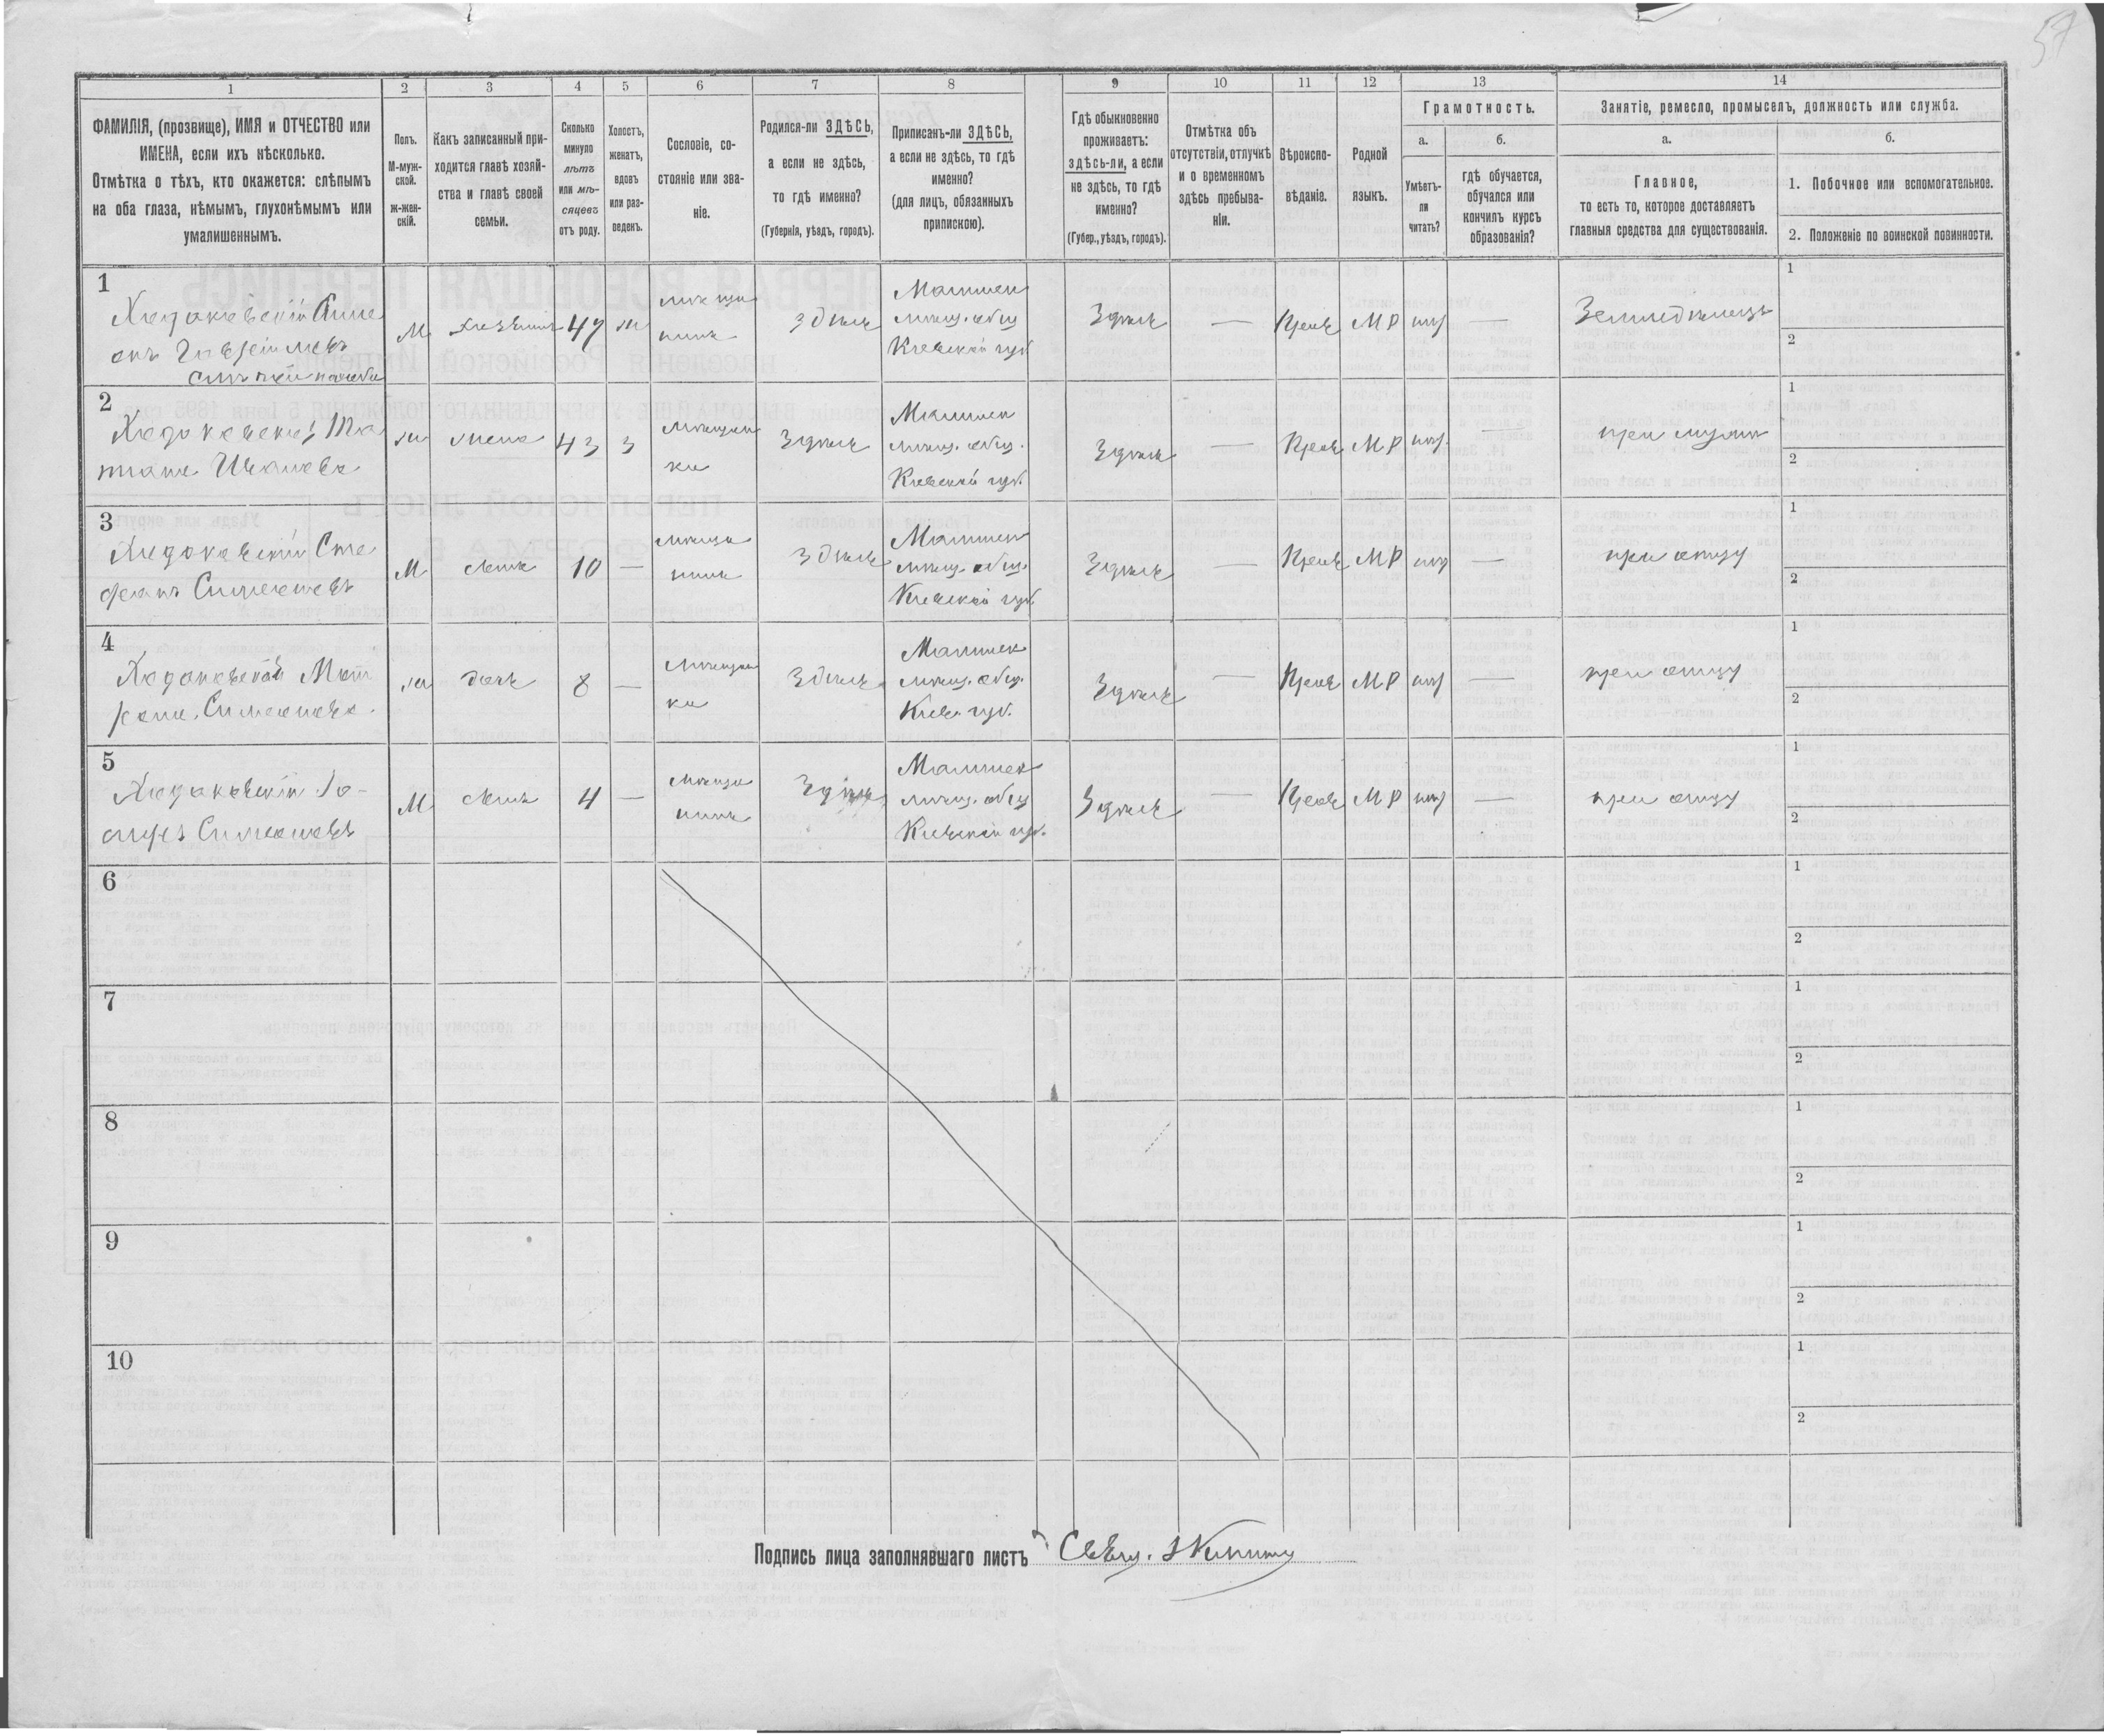 57
1 2 3 4 5 6 7 8 9 10 11 12 13 14
ФАМИЛІЯ, (прозвище), ИМЯ и ОТЧЕСТВО или
ИМЕНА, если ихъ нѣсколько.
Отмѣтка о тѣхъ, кто окажется: слѣпымъ
на оба глаза, нѣмымъ, глухонѣмымъ или
умалишеннымъ.
Полъ.
М-муж-
ской.
ж-жен-
скій.
Какъ записанный при-
ходится главѣ хозяй-
ства и главѣ своей
семьи.
Сколько
минуло
лѣтъ
или мѣ-
сяцевъ
отъ роду.
Холостъ,
женатъ,
вдовъ
или раз-
веденъ.
Сословіе, со-
стояніе или зва-
ніе.
Родился-ли ЗДѢСЬ,
а если не здѣсь,
то гдѣ именно?
(Губернія, уѣздъ, городъ).
Приписанъ-ли ЗДѢСЬ,
а если не здѣсь, то гдѣ
именно?
(для лицъ, обязанныхъ
припискою).
Гдѣ обыкновенно
проживаетъ:
здѣсь-ли, а если
не здѣсь, то гдѣ
именно?
(Губер., уѣздъ, городъ).
Отмѣтка объ
отсутствіи, отлучкѣ
и о временномъ
здѣсь пребыва-
ніи.
Вѣроиспо-
вѣданіе.
Родной
языкъ.
Грамотность.
а.
Умѣетъ-
ли
читать?
б.
гдѣ обучается,
обучался или
кончилъ курсъ
образованія?
Занятіе, ремесло, промыселъ, должность или служба.
а.
Главное,
то есть то, которое доставляетъ
главныя средства для существованія.
б.
1. Побочное или вспомогательное.
2. Положеніе по воинской повинности.
1
Ходаковскій Симе
онъ
М
хозяинъ
47
ж
мѣща
нинъ
Здѣсь
мѣщ. общ
Кіевской губ
Здѣсь
—
Прав
МР
—
Земледѣлецъ
1
2
2
Ходаковска Та
тіана Иванова
ж
жена
43
з
мѣщан
ка
Здѣсь
мѣщ. общ.
Кіевской губ.
Здѣсь
—
Прав
МР
—
при мужѣ
1
2
3
Ходаковскій Сте
фанъ Симеоновъ
М
сынъ
10
—
мѣща
нинъ
Здѣсь
мѣщ. общ.
Кіевской губ.
Здѣсь
—
Прав
МР
—
при отцу
1
2
4
Ходаковская Мат
рона Симеонова
ж
дочь
8
—
мѣщан
ка
Здѣсь
мѣщ. общ.
Кіев. губ.
Здѣсь
—
Прав
МР
—
при отцу
1
2
5
Ходаковскій Іо-
сифъ Симеоновъ
М
сынъ
4
—
мѣща
нинъ
Здѣсь
мѣщ. общ
Кіевской губ.
Здѣсь
—
Прав
МР
—
при отцу
1
2
6
1
2
7
1
2
8
1
2
9
1
2
10
1
2
Подпись лица заполнявшаго листъ